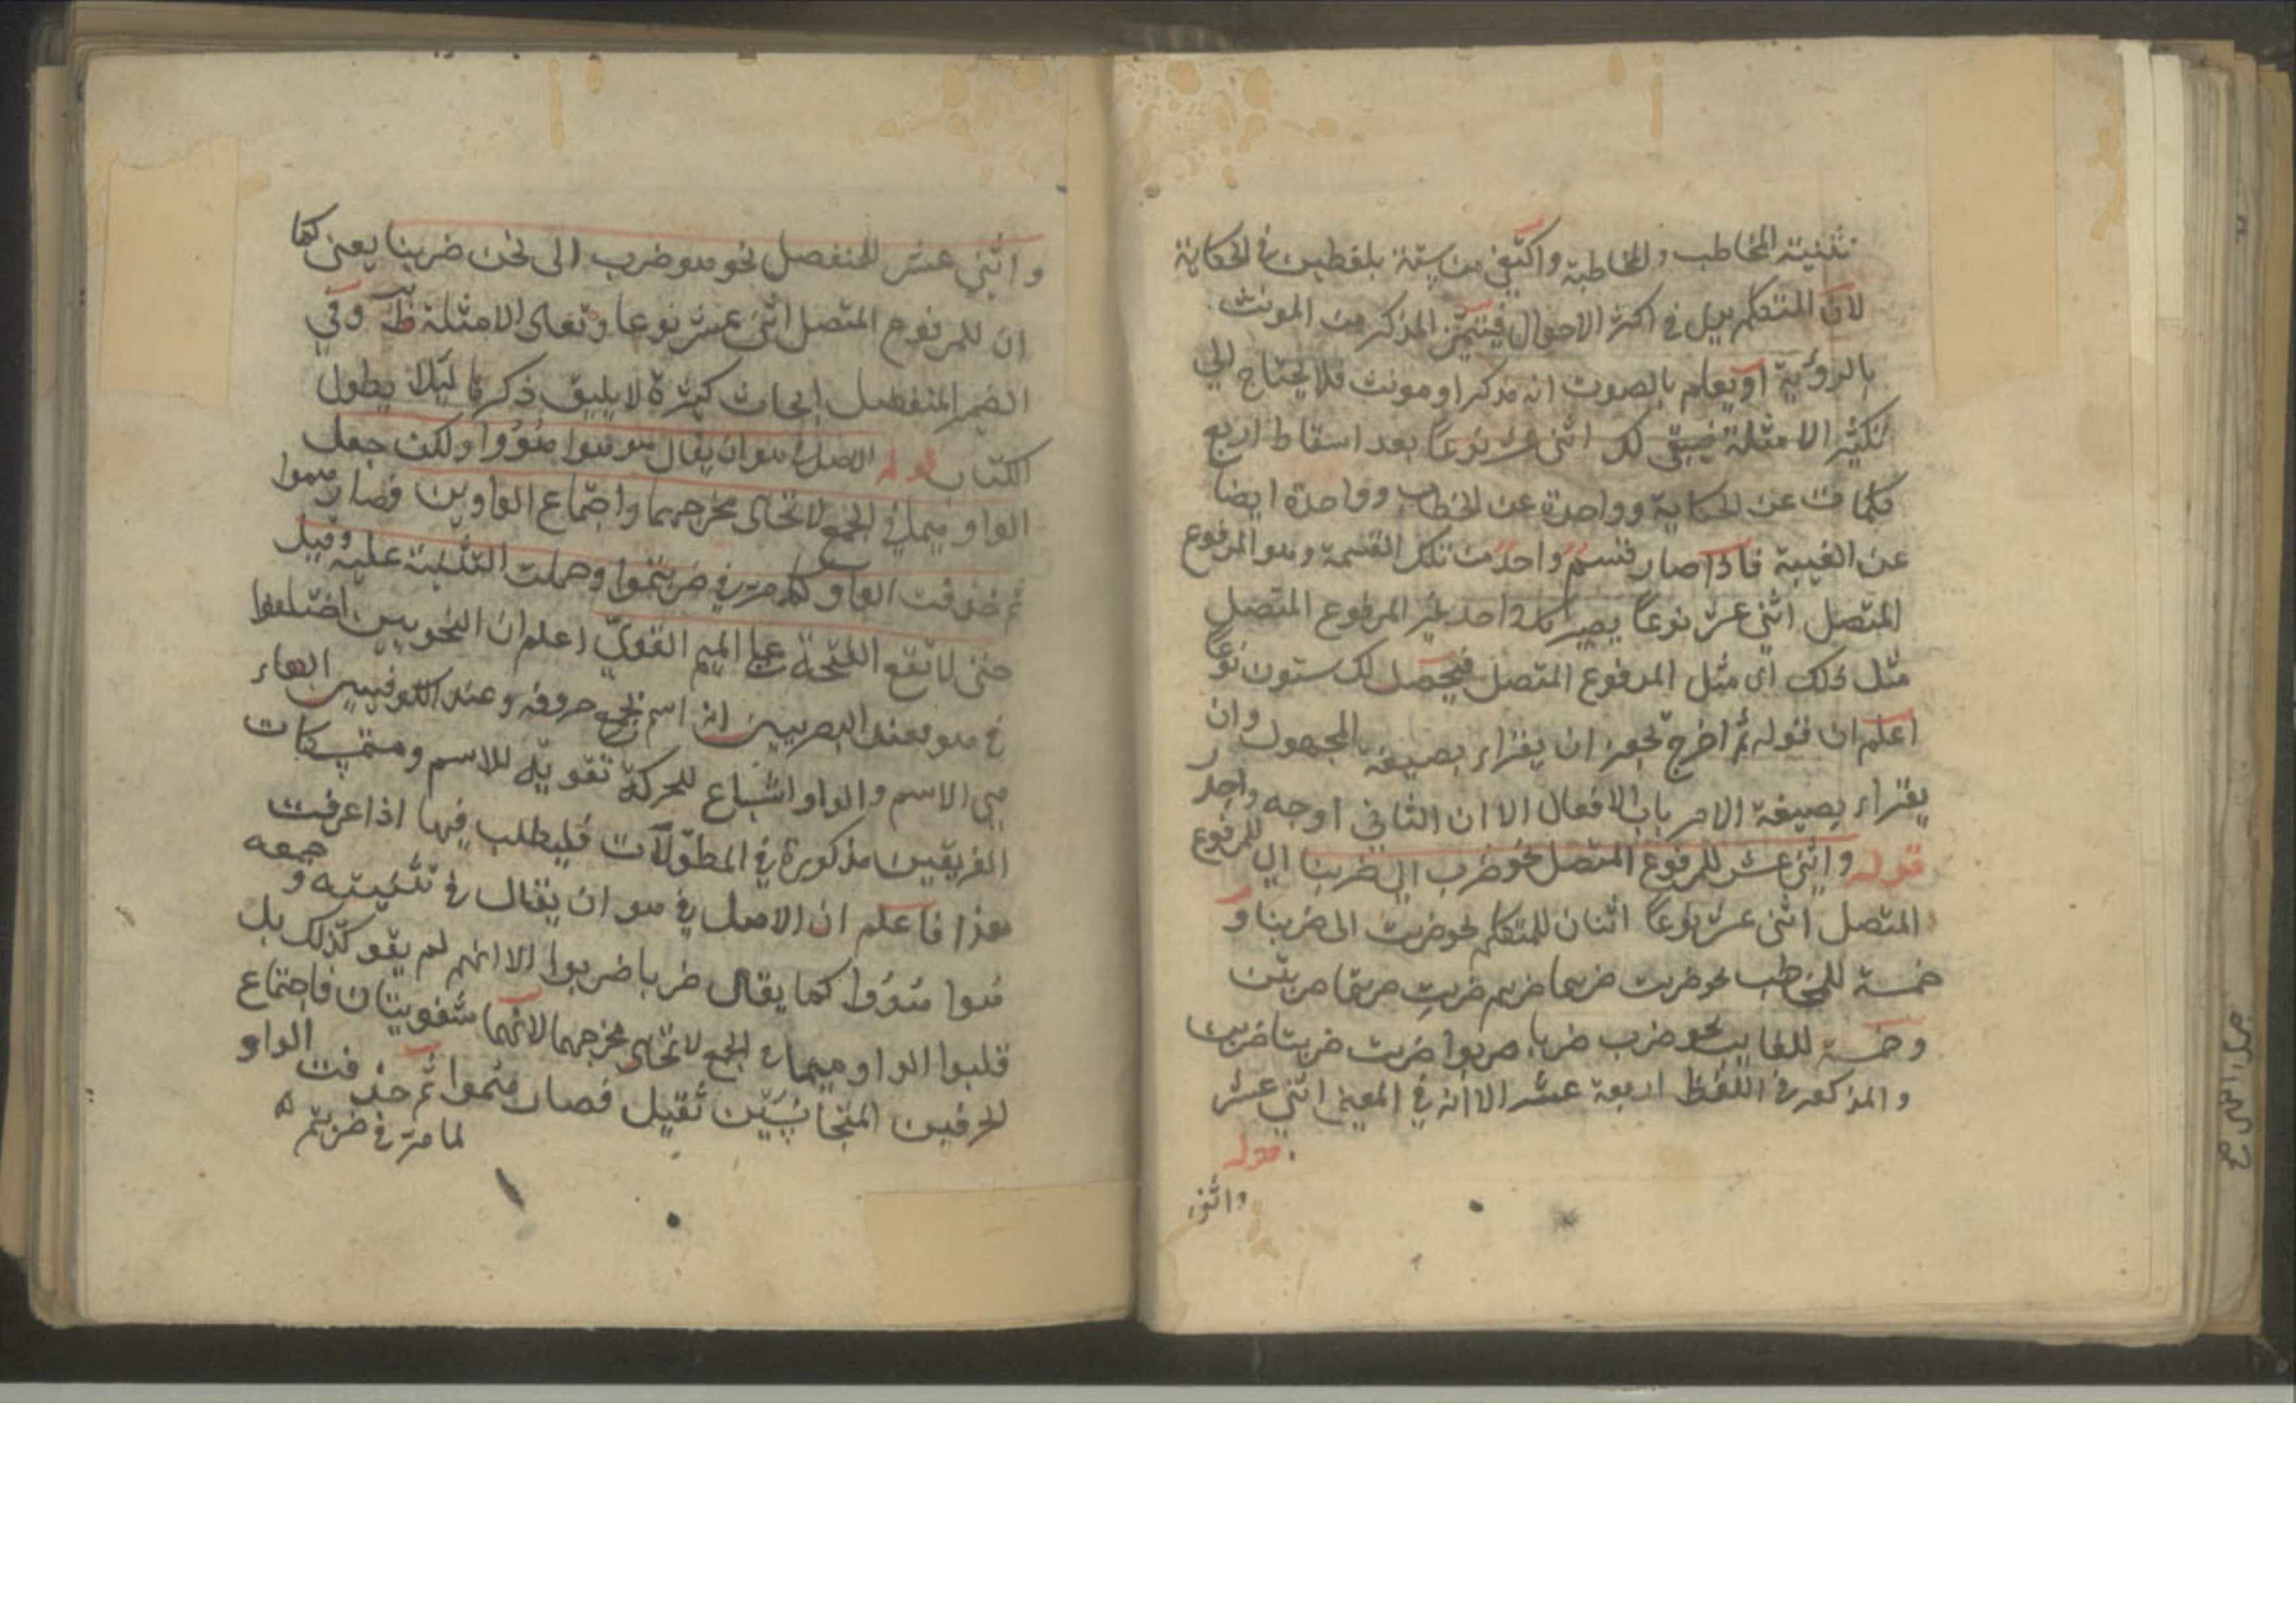 تثنية المخاطب والمخاطبة واكتفي من ستة بلفظين في الحكاية
لان المتكلم يرى في اكثر الاحوال فيتميّز المذكر من المونث
بالرؤية او يعلم بالصوت انه مذكر او مونث فلا يحتاج الي
تكثير الامثلة فيبقى لك اثنى عشر نوعاً بعد اسقاط اربع
كلمات عن الحكاية وواحدة عن الخطاب وواحدة ايضا
عن الغيبة فاذا صار قسم واحد من تلك القسمة وهو المرفوع
المتصل اثني عشر نوعاً يصير كل واحد غير المرفوع المتصل
مثل ذلك اى مثل المرفوع المتصل فيحصل لك ستون نوعاً
اعلم ان قوله ثم اخرج يجوز ان يقراء بصيغة المجهول وان
يقراء بصيغة الامر باب الافعال الا ان الثاني اوجه واجدر
قوله واثنى عشر للمرفوع المتصل نحو ضرب الى ضربنا اي للمرفوع
المتصل اثنى عشر نوعاً اثنان للمتكلم نحو ضربت الى ضربنا و
خمسة للمخاطب نحو ضربت ضربتما ضربتم ضربتِ ضربتما ضربتن
وخمسة للغايب نحو ضرب ضربا ضربوا ضربت ضربتا ضربن
والمذكور في اللفظ اربعة عشر الا انه في المعنى اثني عشر
قوله
واثنى
واثني عشر للمنفصل نحو هو ضرب الى نحن ضربنا يعنى كما
ان للمرفوع المتصل اثنى عشر نوعا وتعداد الامثلة ظ وفي
الضمير المنفصل ابحاث كثيرة لا يليق ذكرها ليلا يطول
الكتاب قوله الاصل في هو ان يقال هو هوا هُوُوا ولكن جعل
الواو ميما في الجمع لاتحاد مخرجهما واجتماع الواوين فصار هموا
ثم حذفت الواو كما مر في ضربتموا وحملت التثنية عليه وقيل
حتى لا تقع الفتحة على الميم القوىّ اعلم ان النحويين اختلفوا
في هو فعند البصريين انه اسم بجميع حروفه وعند الكوفيين الهاء
هي الاسم والواو اشباع للحركة تقوية للاسم ومتمسكات
الفريقين مذكورة في المطوّلات فليطلب فيها اذا عرفت
هذا فاعلم ان الاصل في هو ان يقال في تثنيته وجمعه
هُوا هُوُوا كما يقال ضربا ضربوا الا انهم لم يقو كذلك بل
قلبوا الواو ميما في الجمع لاتحاد مخرجهما لانهما شفويتان فاجتماع
الحرفين المتجانسين ثقيل فصار هموا ثم حذفت الواو
لما مر في ضربتم